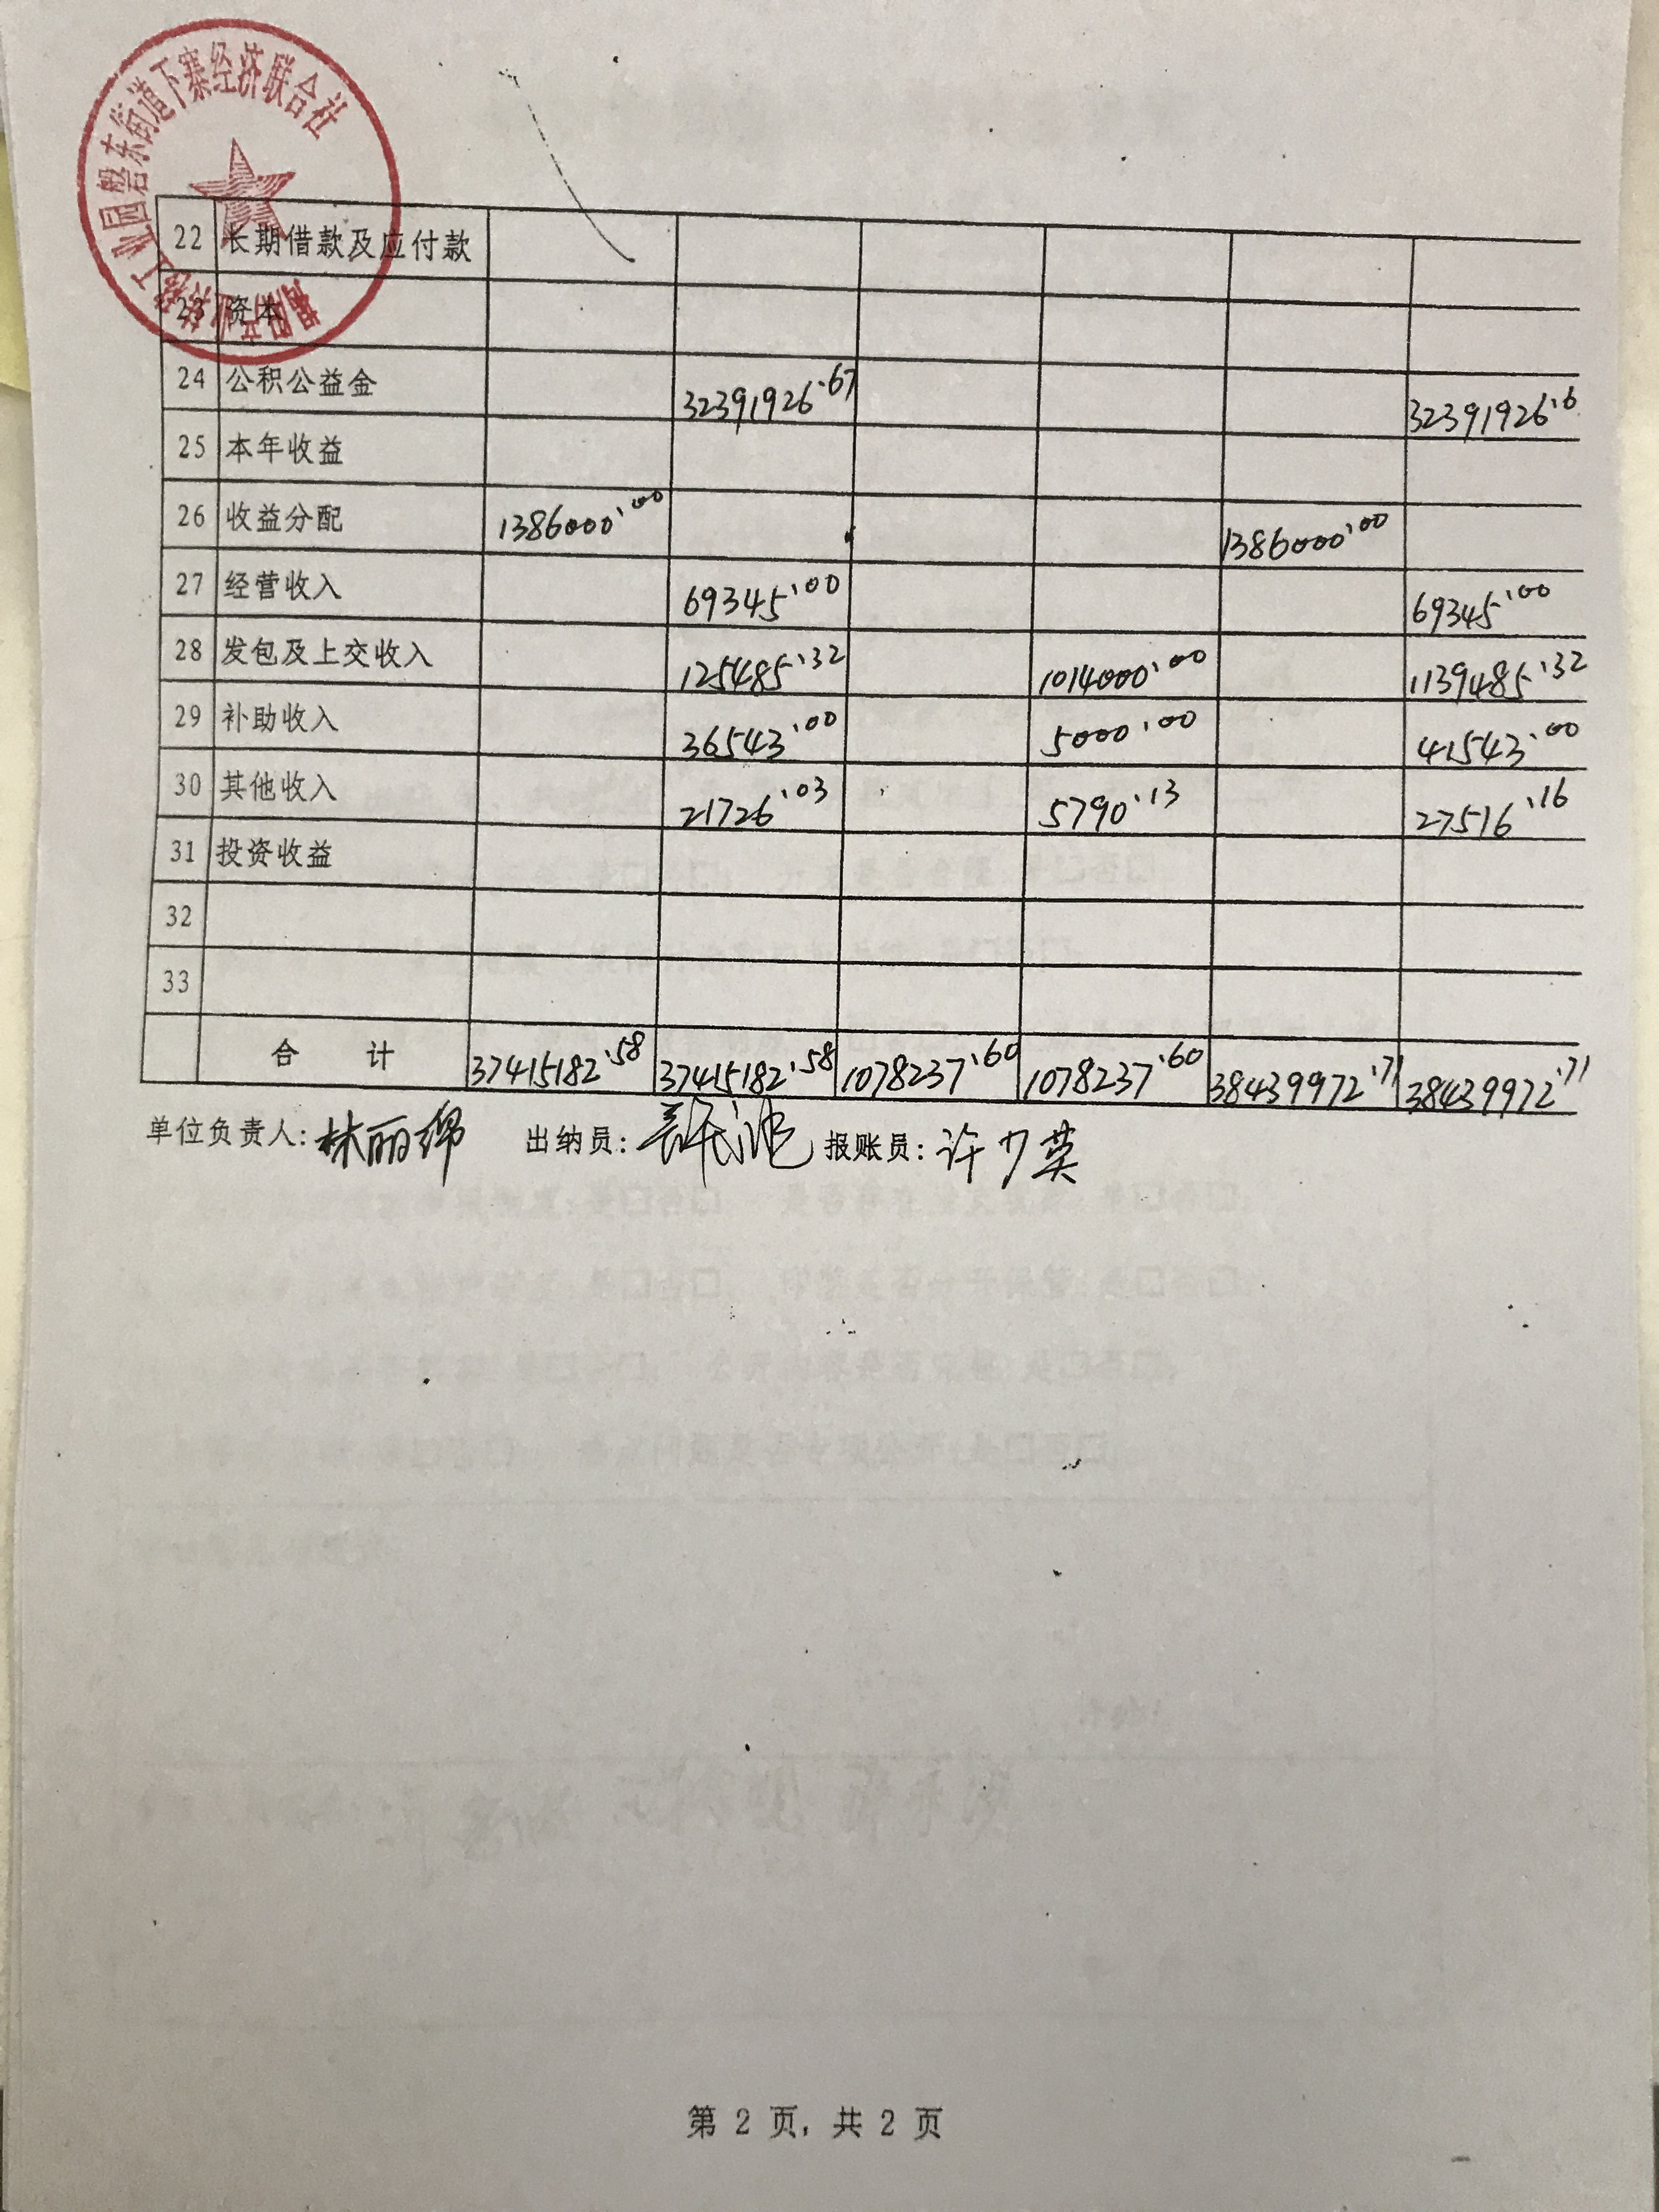 揭阳产业转移工业园磐东街道下寨经济联合社
22 长期借款及应付款
23 资本
24 公积公益金 32391926.67 32391926.6
25 本年收益
26 收益分配 1386000.00 1386000.00
27 经营收入 69345.00 69345.00
28 发包及上交收入 125485.32 1014000.00 1139485.32
29 补助收入 36543.00 5000.00 41543.00
30 其他收入 21726.03 5790.13 27516.16
31 投资收益
32
33
合 计 37415182.58 37415182.58 1078237.60 1078237.60 38439972.71 38439972.71
单位负责人: 林丽绵 出纳员: 报账员: 许少英
第 2 页, 共 2 页